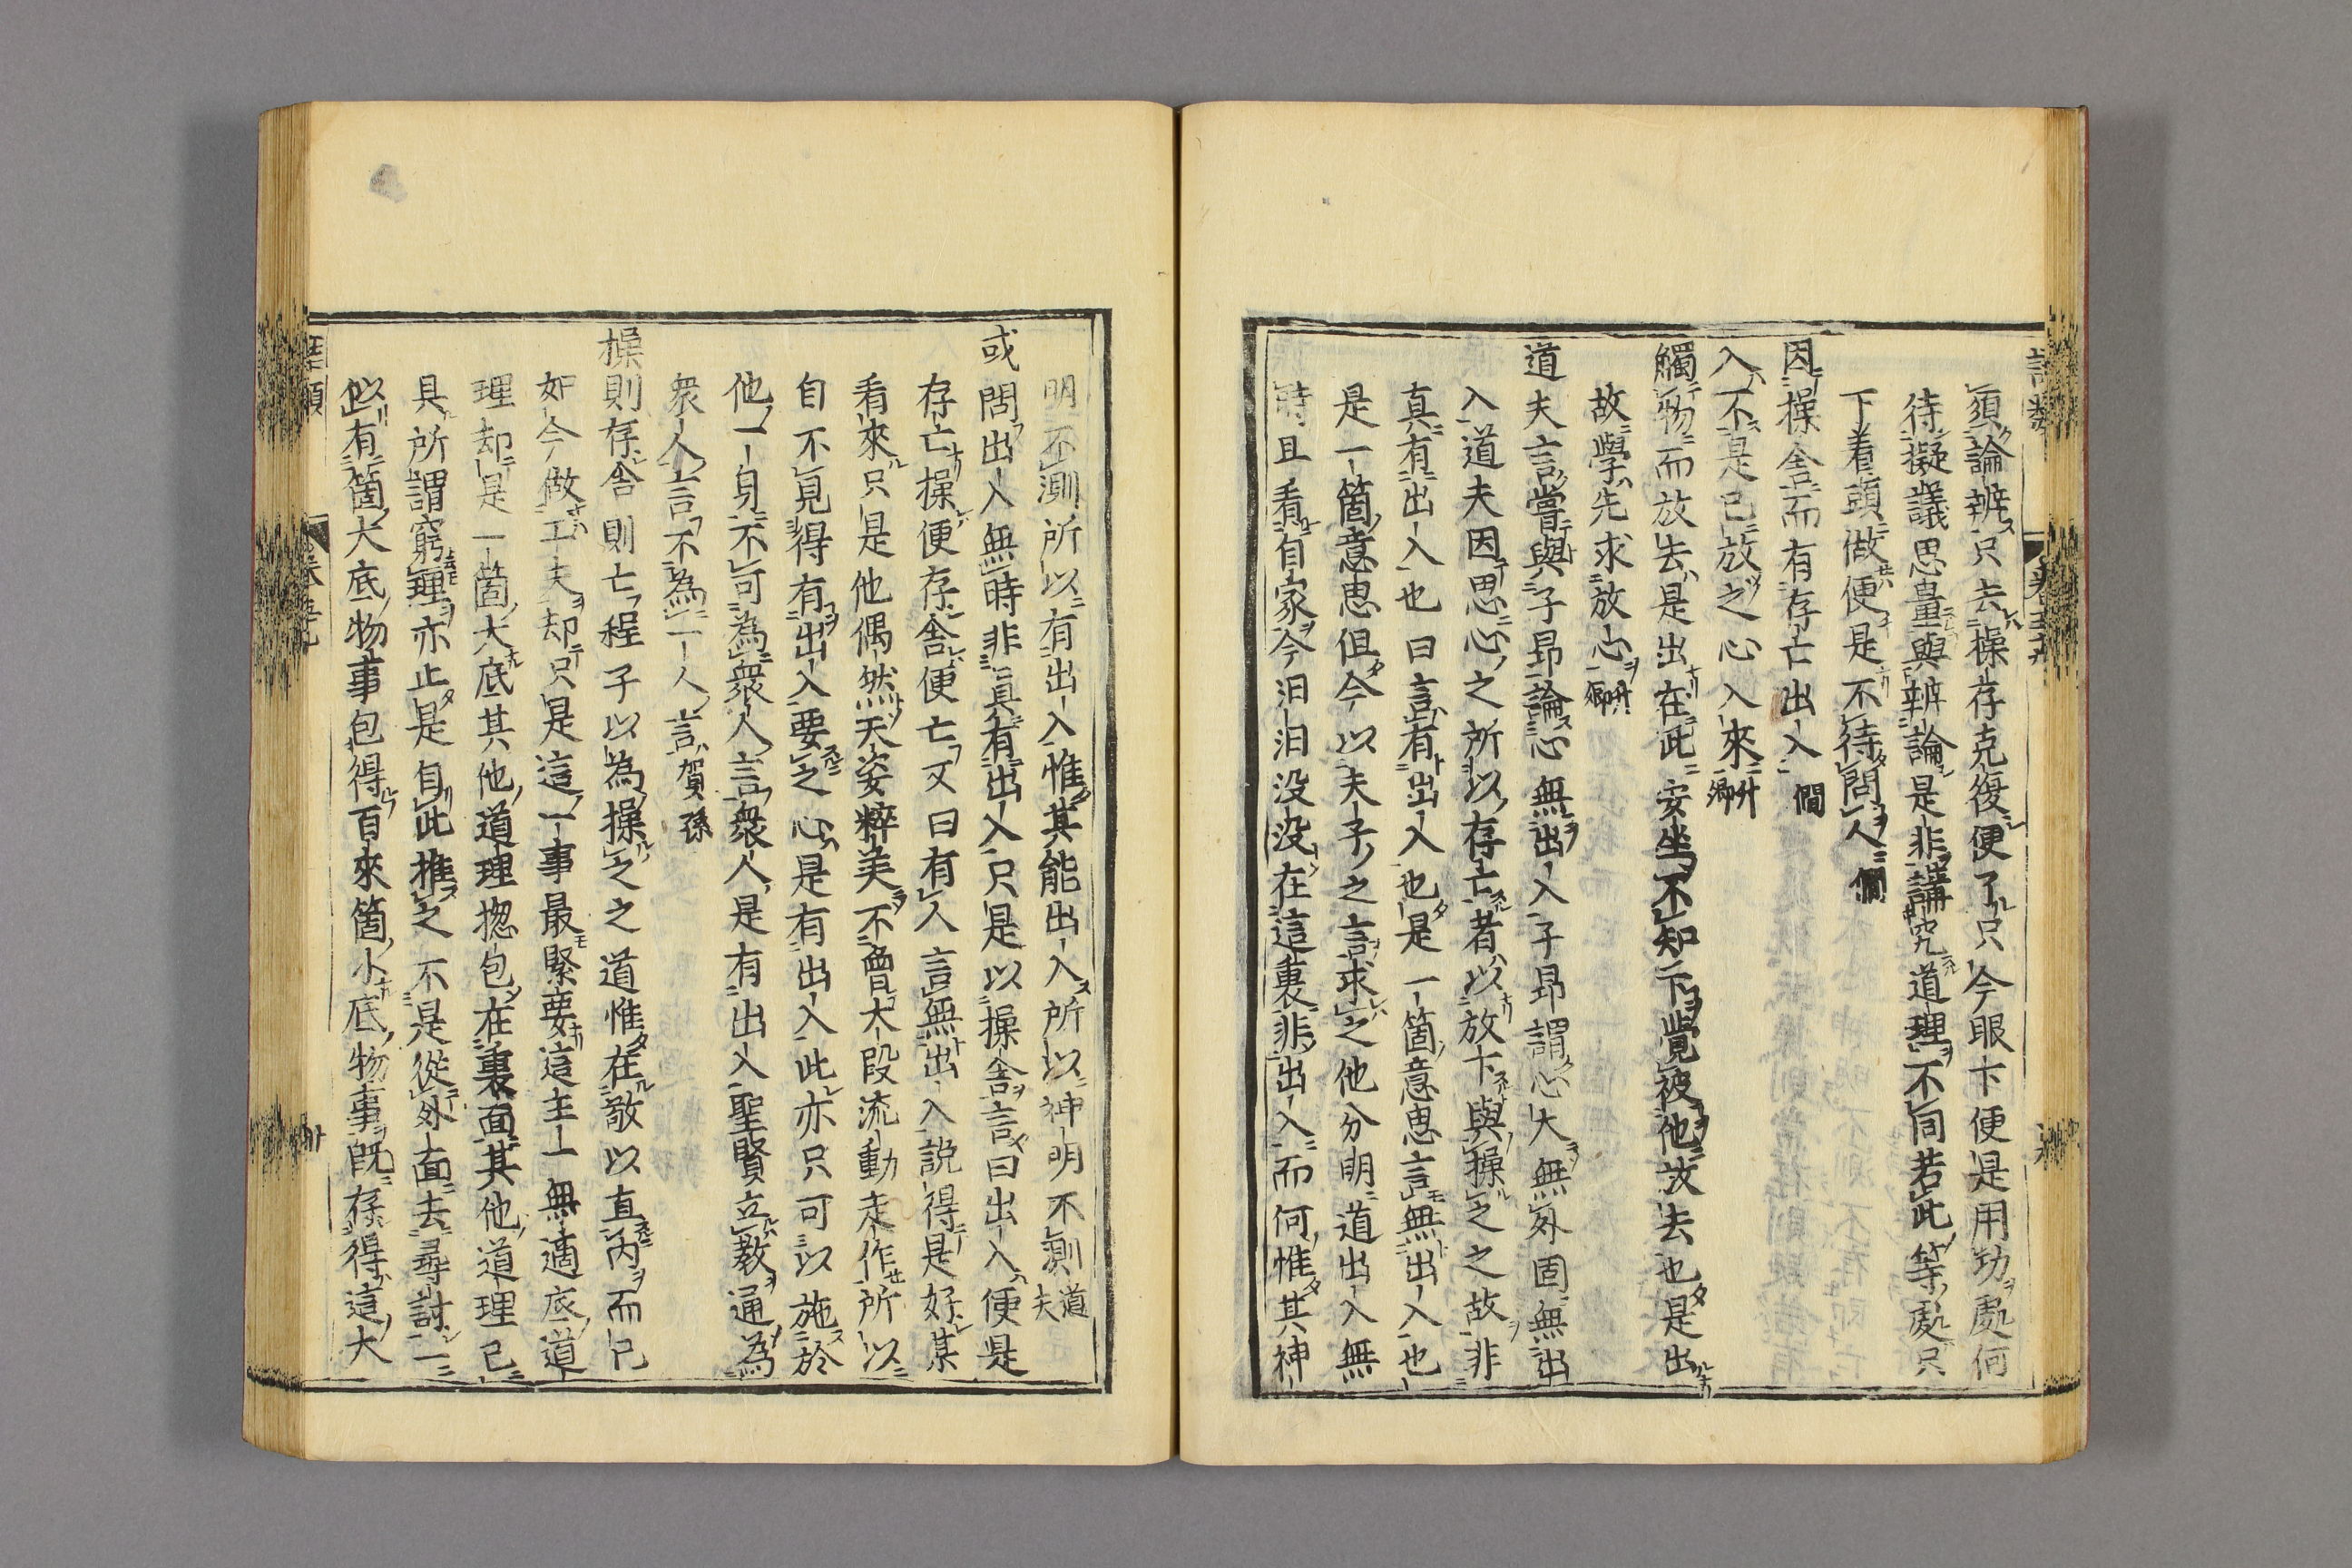 須論辨只去操存克復便了只今眼下便是用功處何
待擬議思量與辨論是非講究道理不同若此等處只
下着頭做便是不待問人僴
因操舍而有存亡出入僴
入不是已放之心入來升卿
觸物而放去是出在此安坐不知不覺被他放去也是出
故學先求放心升卿
道夫言嘗與子昂論心無出入子昂謂心大無外固無出
入道夫因思心之所以存亡者以放下與操之之故非
真有出入也曰言有出入也是一箇意思言無出入也
是一箇意思但今以夫子之言求之他分明道出入無
時且看自家今汩汩没没在這裏非出入而何惟其神
明不測所以有出入惟其能出入所以神明不測道夫
或問出入無時非真有出入只是以操舍言曰出入便是
存亡操便存舍便亡又曰有人言無出入説得是好某
看來只是他偶然天姿粹美不曾大段流動走作所以
自不見得有出入要之心是有出入此亦只可以施於
他一身不可為衆人言衆人是有出入聖賢立教通為
衆人言不為一人言賀孫
操則存舍則亡程子以為操之之道惟在敬以直内而已
如今做工夫却只是這一事最緊要這主一無適底道
理却是一箇大底其他道理捴包在裏面其他道理已
具所謂窮理亦止是自此推之不是從外面去尋討一
似有箇大底物事包得百來箇小底物事既存得這大